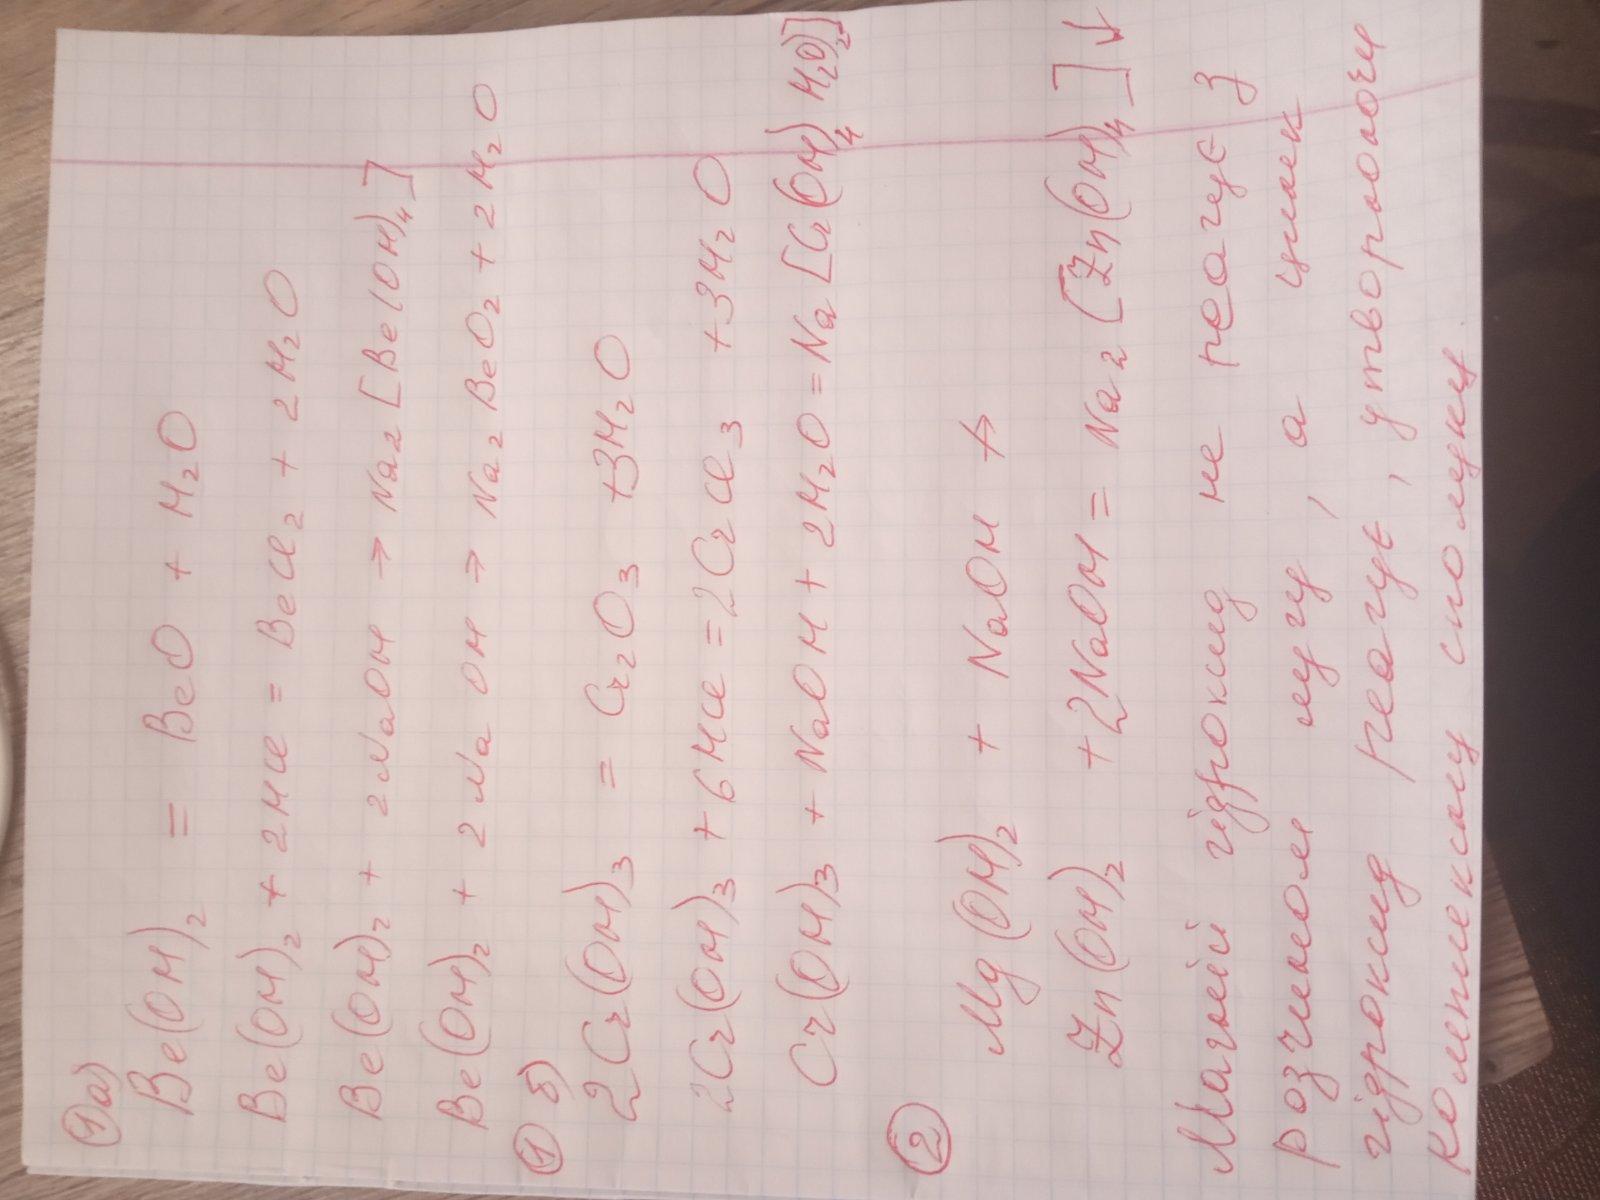 1 а)
Be(OH)₂ = BeO + H₂O
Be(OH)₂ + 2HCl = BeCl₂ + 2H₂O
Be(OH)₂ + 2NaOH → Na₂[Be(OH)₄]
Be(OH)₂ + 2NaOH → Na₂BeO₂ + 2H₂O
1 б)
2Cr(OH)₃ = Cr₂O₃ + 3H₂O
2Cr(OH)₃ + 6HCl = 2CrCl₃ + 3H₂O
Cr(OH)₃ + NaOH + 2H₂O = Na[Cr(OH)₄ H₂O)₂]
2
Mg(OH)₂ + NaOH ↛
Zn(OH)₂ + 2NaOH = Na₂[Zn(OH)₄]↓
Магній гідроксид не реагує з
розчином лугу, а цинк
гідроксид реагує, утворюючи
комплексну сполуку.